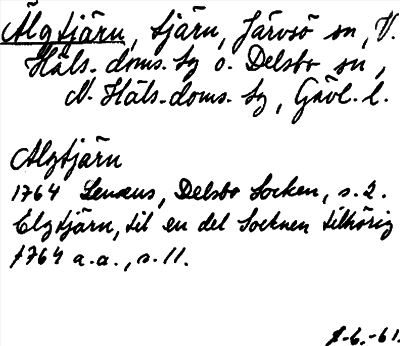 Älgtjärn, tjärn, Järvsö sn, V.
Häls. doms. tg o. Delsbo sn,
N. Häls. doms. tg, Gävl. l.
Älgtjärn
1764 Lenæus, Delsbo Socken, s. 2.
Elgtjärn, til en del Socknen tilhörig
1764 a.a., s. 11.